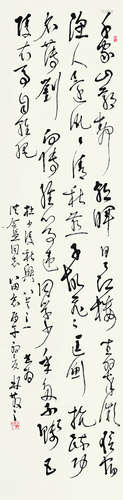 千家山郭静朝暉日日江樓坐翠微信宿
漁人還泛泛清秋燕子故飛飛匡衡抗疏功
名薄劉向傳經心事違同學少年多不賤五
陵衣馬自輕肥
杜少陵秋興八首之一 書為
同志 林散之